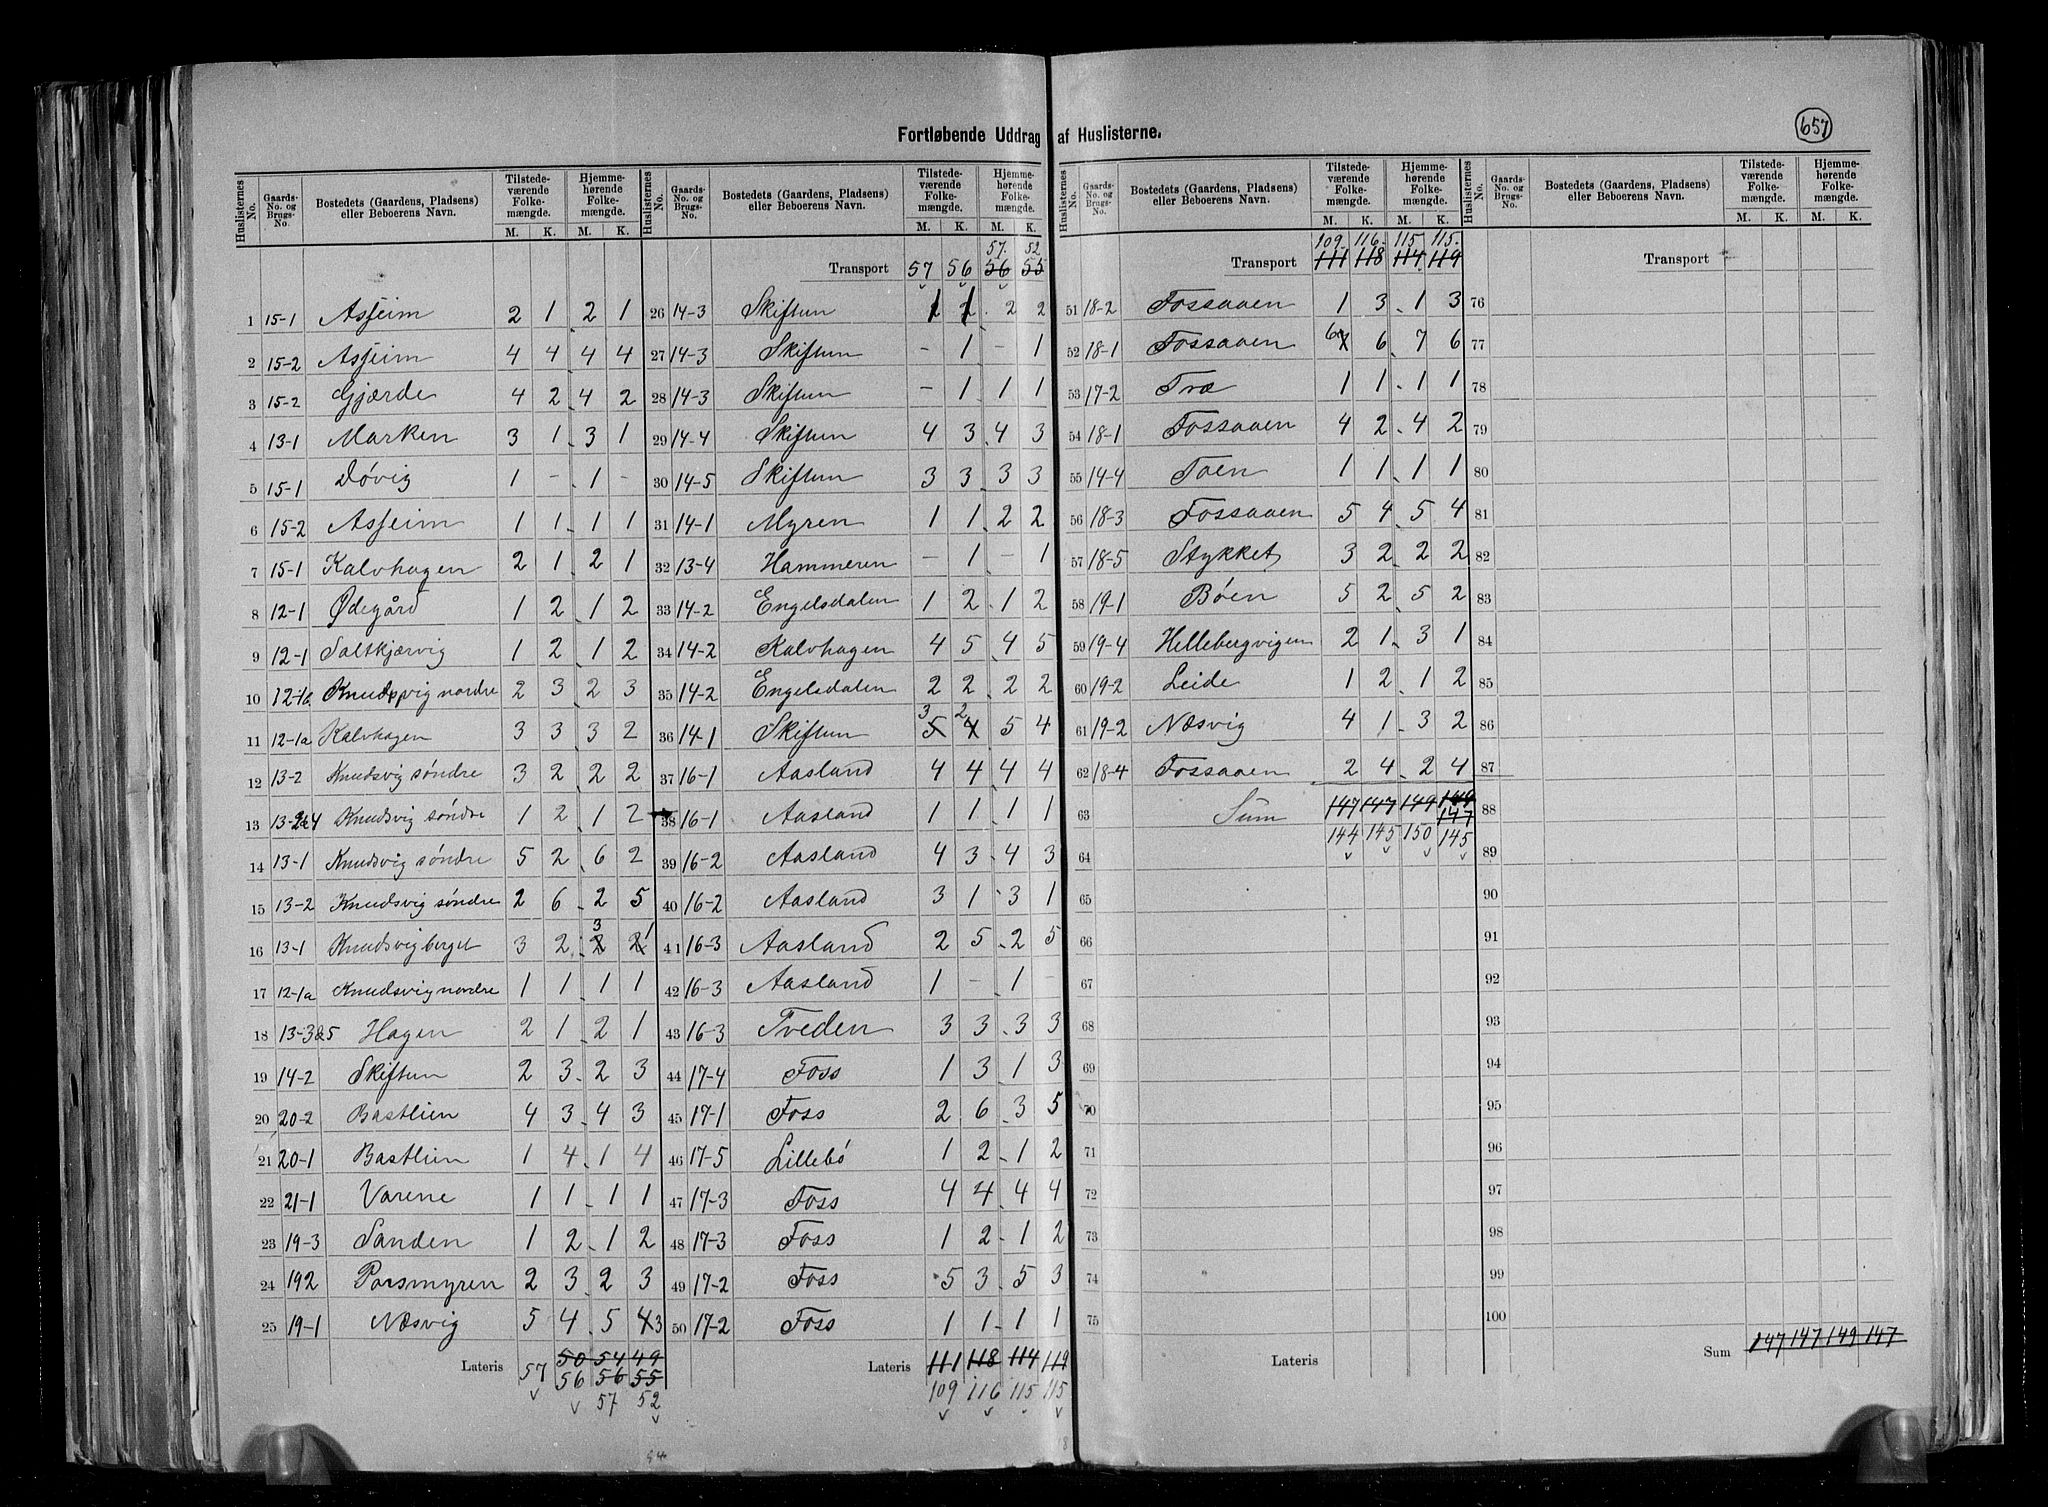 Fortløbende Uddrag af Huslisterne.
657
Huslisternes No. | Gaards-No. og Brugs-No. | Bostedets (Gaardens, Pladsens) eller Beboerens Navn. | Tilstedeværende Folkemængde. M. K. | Hjemmehørende Folkemængde. M. K.
1 15-1 Asheim 2 1 2 1
2 15-2 Asheim 4 4 4 4
3 15-2 Gjærde 4 2 4 2
4 13-1 Marken 3 1 3 1
5 15-1 Døvig 1 - 1 -
6 15-2 Asheim 1 1 1 1
7 15-1 Kalvhagen 2 1 2 1
8 12-1 Ødegård 1 2 1 2
9 12-1 Saltkjærvig 1 2 1 2
10 12-1b Knudsvig nordre 2 3 2 3
11 12-1a Kalvhagen 3 3 3 2
12 13-2 Knudsvig søndre 3 2 2 2
13 13-2&4 Knudsvig søndre 1 2 1 2
14 13-1 Knudsvig søndre 5 2 6 2
15 13-2 Knudsvig søndre 2 6 2 5
16 13-1 Knudsvigberget 3 2 2 3 2 1
17 12-1a Knudsvig nordre 1 1 1 1
18 13-3&5 Hagen 2 1 2 1
19 14-2 Skiftun 2 3 2 3
20 20-2 Bastlien 4 3 4 3
21 20-1 Bastlien 1 4 1 4
22 21-1 Varene 1 1 1 1
23 19-3 Sanden 1 2 1 2
24 192 Porsmyren 2 3 2 3
25 19-1 Næsvig 5 4 5 4 3
Lateris 57 50 54 49
56 56 55
57 52
Huslisternes No. | Gaards-No. og Brugs-No. | Bostedets (Gaardens, Pladsens) eller Beboerens Navn. | Tilstedeværende Folkemængde. M. K. | Hjemmehørende Folkemængde. M. K.
57. 52
Transport 57 56 56 55
26 14-3 Skiftun 1 1 2 2
27 14-3 Skiftun - 1 - 1
28 14-3 Skiftun - 1 1 1
29 14-4 Skiftun 4 3 4 3
30 14-5 Skiftun 3 3 3 3
31 14-1 Myren 1 1 2 2
32 13-4 Hammeren - 1 - 1
33 14-2 Engelsdalen 1 2 1 2
34 14-2 Kalvhagen 4 5 4 5
35 14-2 Engelsdalen 2 2 2 2
36 14-1 Skiftun 5 3 4 2 5 4
37 16-1 Aasland 4 4 4 4
38 16-1 Aasland 1 1 1 1
39 16-2 Aasland 4 3 4 3
40 16-2 Aasland 3 1 3 1
41 16-3 Aasland 2 5 2 5
42 16-3 Aasland 1 - 1 -
43 16-3 Tveden 3 3 3 3
44 17-4 Foss 1 3 1 3
45 17-1 Foss 2 6 3 5
46 17-5 Lillebø 1 2 1 2
47 17-3 Foss 4 4 4 4
48 17-3 Foss 1 2 1 2
49 17-2 Foss 5 3 5 3
50 17-2 Foss 1 1 1 1
Lateris 111 118 114 119
109 116 115 115
Huslisternes No. | Gaards-No. og Brugs-No. | Bostedets (Gaardens, Pladsens) eller Beboerens Navn. | Tilstedeværende Folkemængde. M. K. | Hjemmehørende Folkemængde. M. K.
109. 116. 115. 115.
Transport 111 118 114 119
51 18-2 Fossaaen 1 3 1 3
52 18-1 Fossaaen 7 6 6 7 6
53 17-2 Træ 1 1 1 1
54 18-1 Fossaaen 4 2 4 2
55 14-4 Toen 1 1 1 1
56 18-3 Fossaaen 5 4 5 4
57 18-5 Stykket 3 2 2 2
58 19-1 Bøen 5 2 5 2
59 19-4 Hellebergvigen 2 1 3 1
60 19-2 Leide 1 2 1 2
61 19-2 Næsvig 4 1 3 2
62 18-4 Fossaaen 2 4 2 4
63 Sum 147 147 149 147
144 145 150 145
64
65
66
67
68
69
70
71
72
73
74
75
Lateris
Huslisternes No. | Gaards-No. og Brugs-No. | Bostedets (Gaardens, Pladsens) eller Beboerens Navn. | Tilstedeværende Folkemængde. M. K. | Hjemmehørende Folkemængde. M. K.
Transport
76
77
78
79
80
81
82
83
84
85
86
87
88
89
90
91
92
93
94
95
96
97
98
99
100
Sum 147 147 149 147